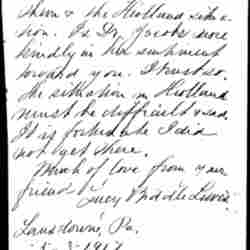 them & the Holland situa-
tion. Is Dr. Jacobs more
kindly in her sentiment
toward you. I trust so.
The situation in Holland
must be difficult & sad.
It is fortunate I did
not get there.
Much of love from your
friend
Lucy Biddle Lewis
Lansdowne, Pa.
1917